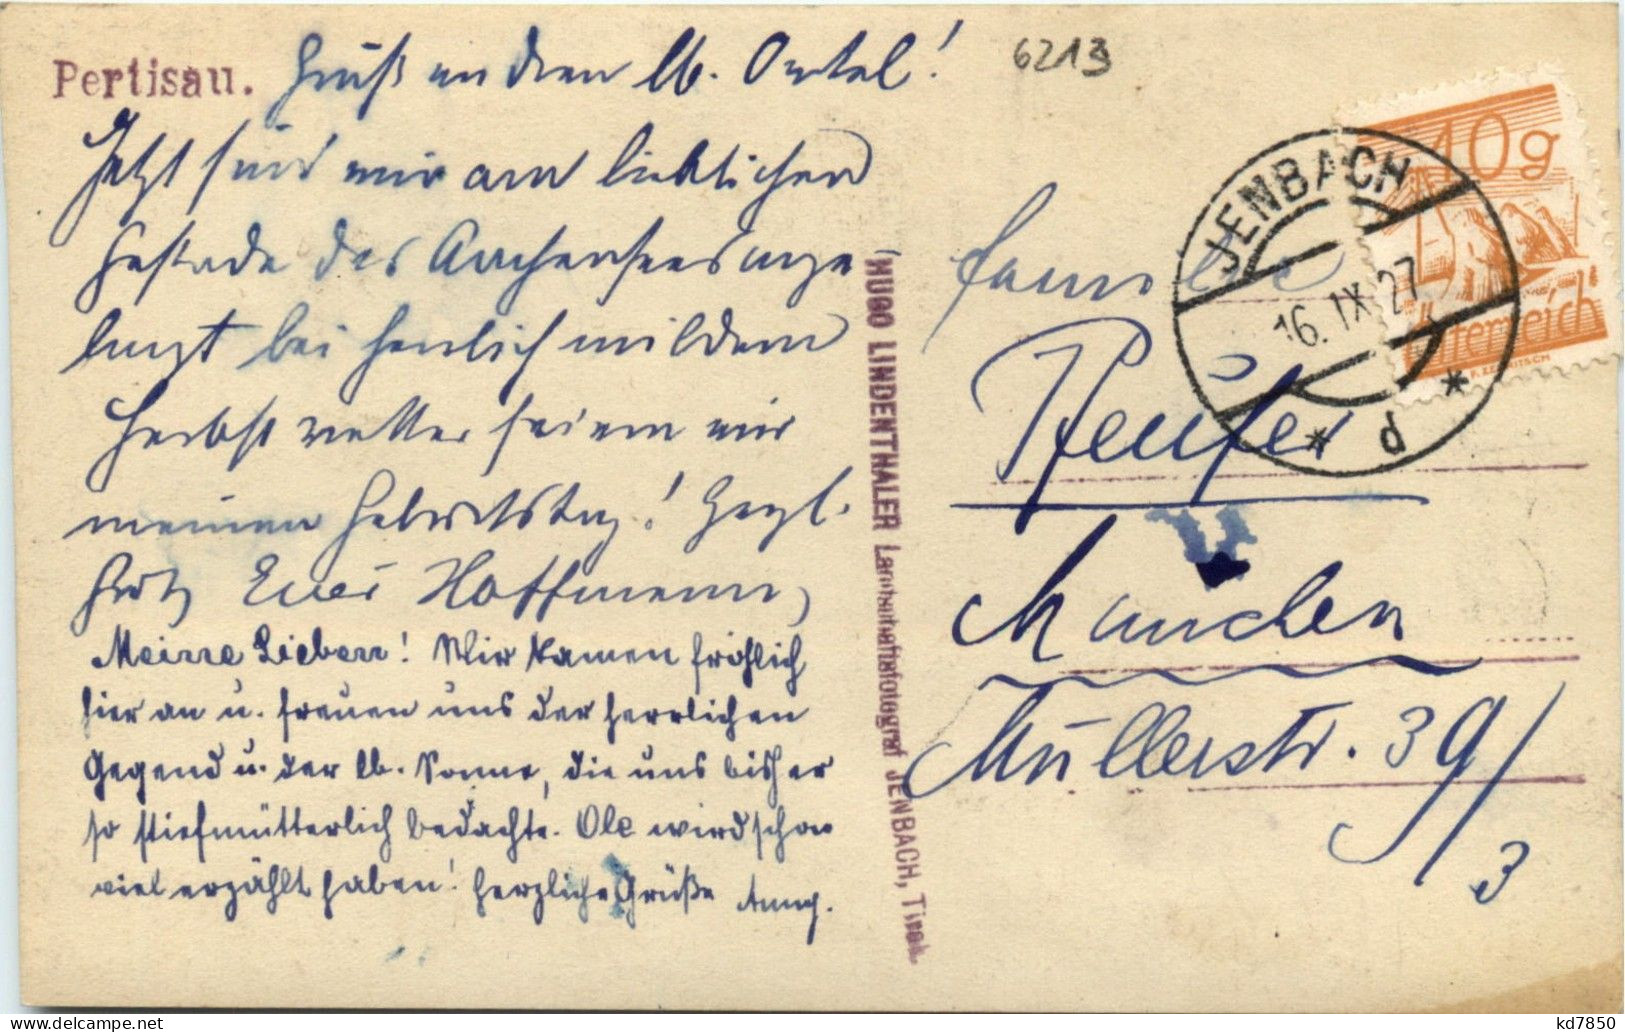 Pertisau. Gruß an den lb. Onkel!
6213
Jetzt sind wir am lieblichen
Gestade des Aachensees ange
langt bei herrlich mildem
Herbstwetter feiern wir
meinen Geburtstag! Herzl.
Euer Hoffmann,
Meine Lieben! Wir kamen fröhlich
hier an u. freuen uns der herrlichen
Gegend u. der lb. Sonne, die uns bisher
so stiefmütterlich bedachte. Ole wird schon
viel erzählt haben! Herzliche Grüße Anny.
HUGO LINDENTHALER Landschaftsfotograf JENBACH, Tirol.
10g
Österreich
JENBACH
16. IX 27
* d *
Familie
München
Müllerstr. 39/
3
kd7850